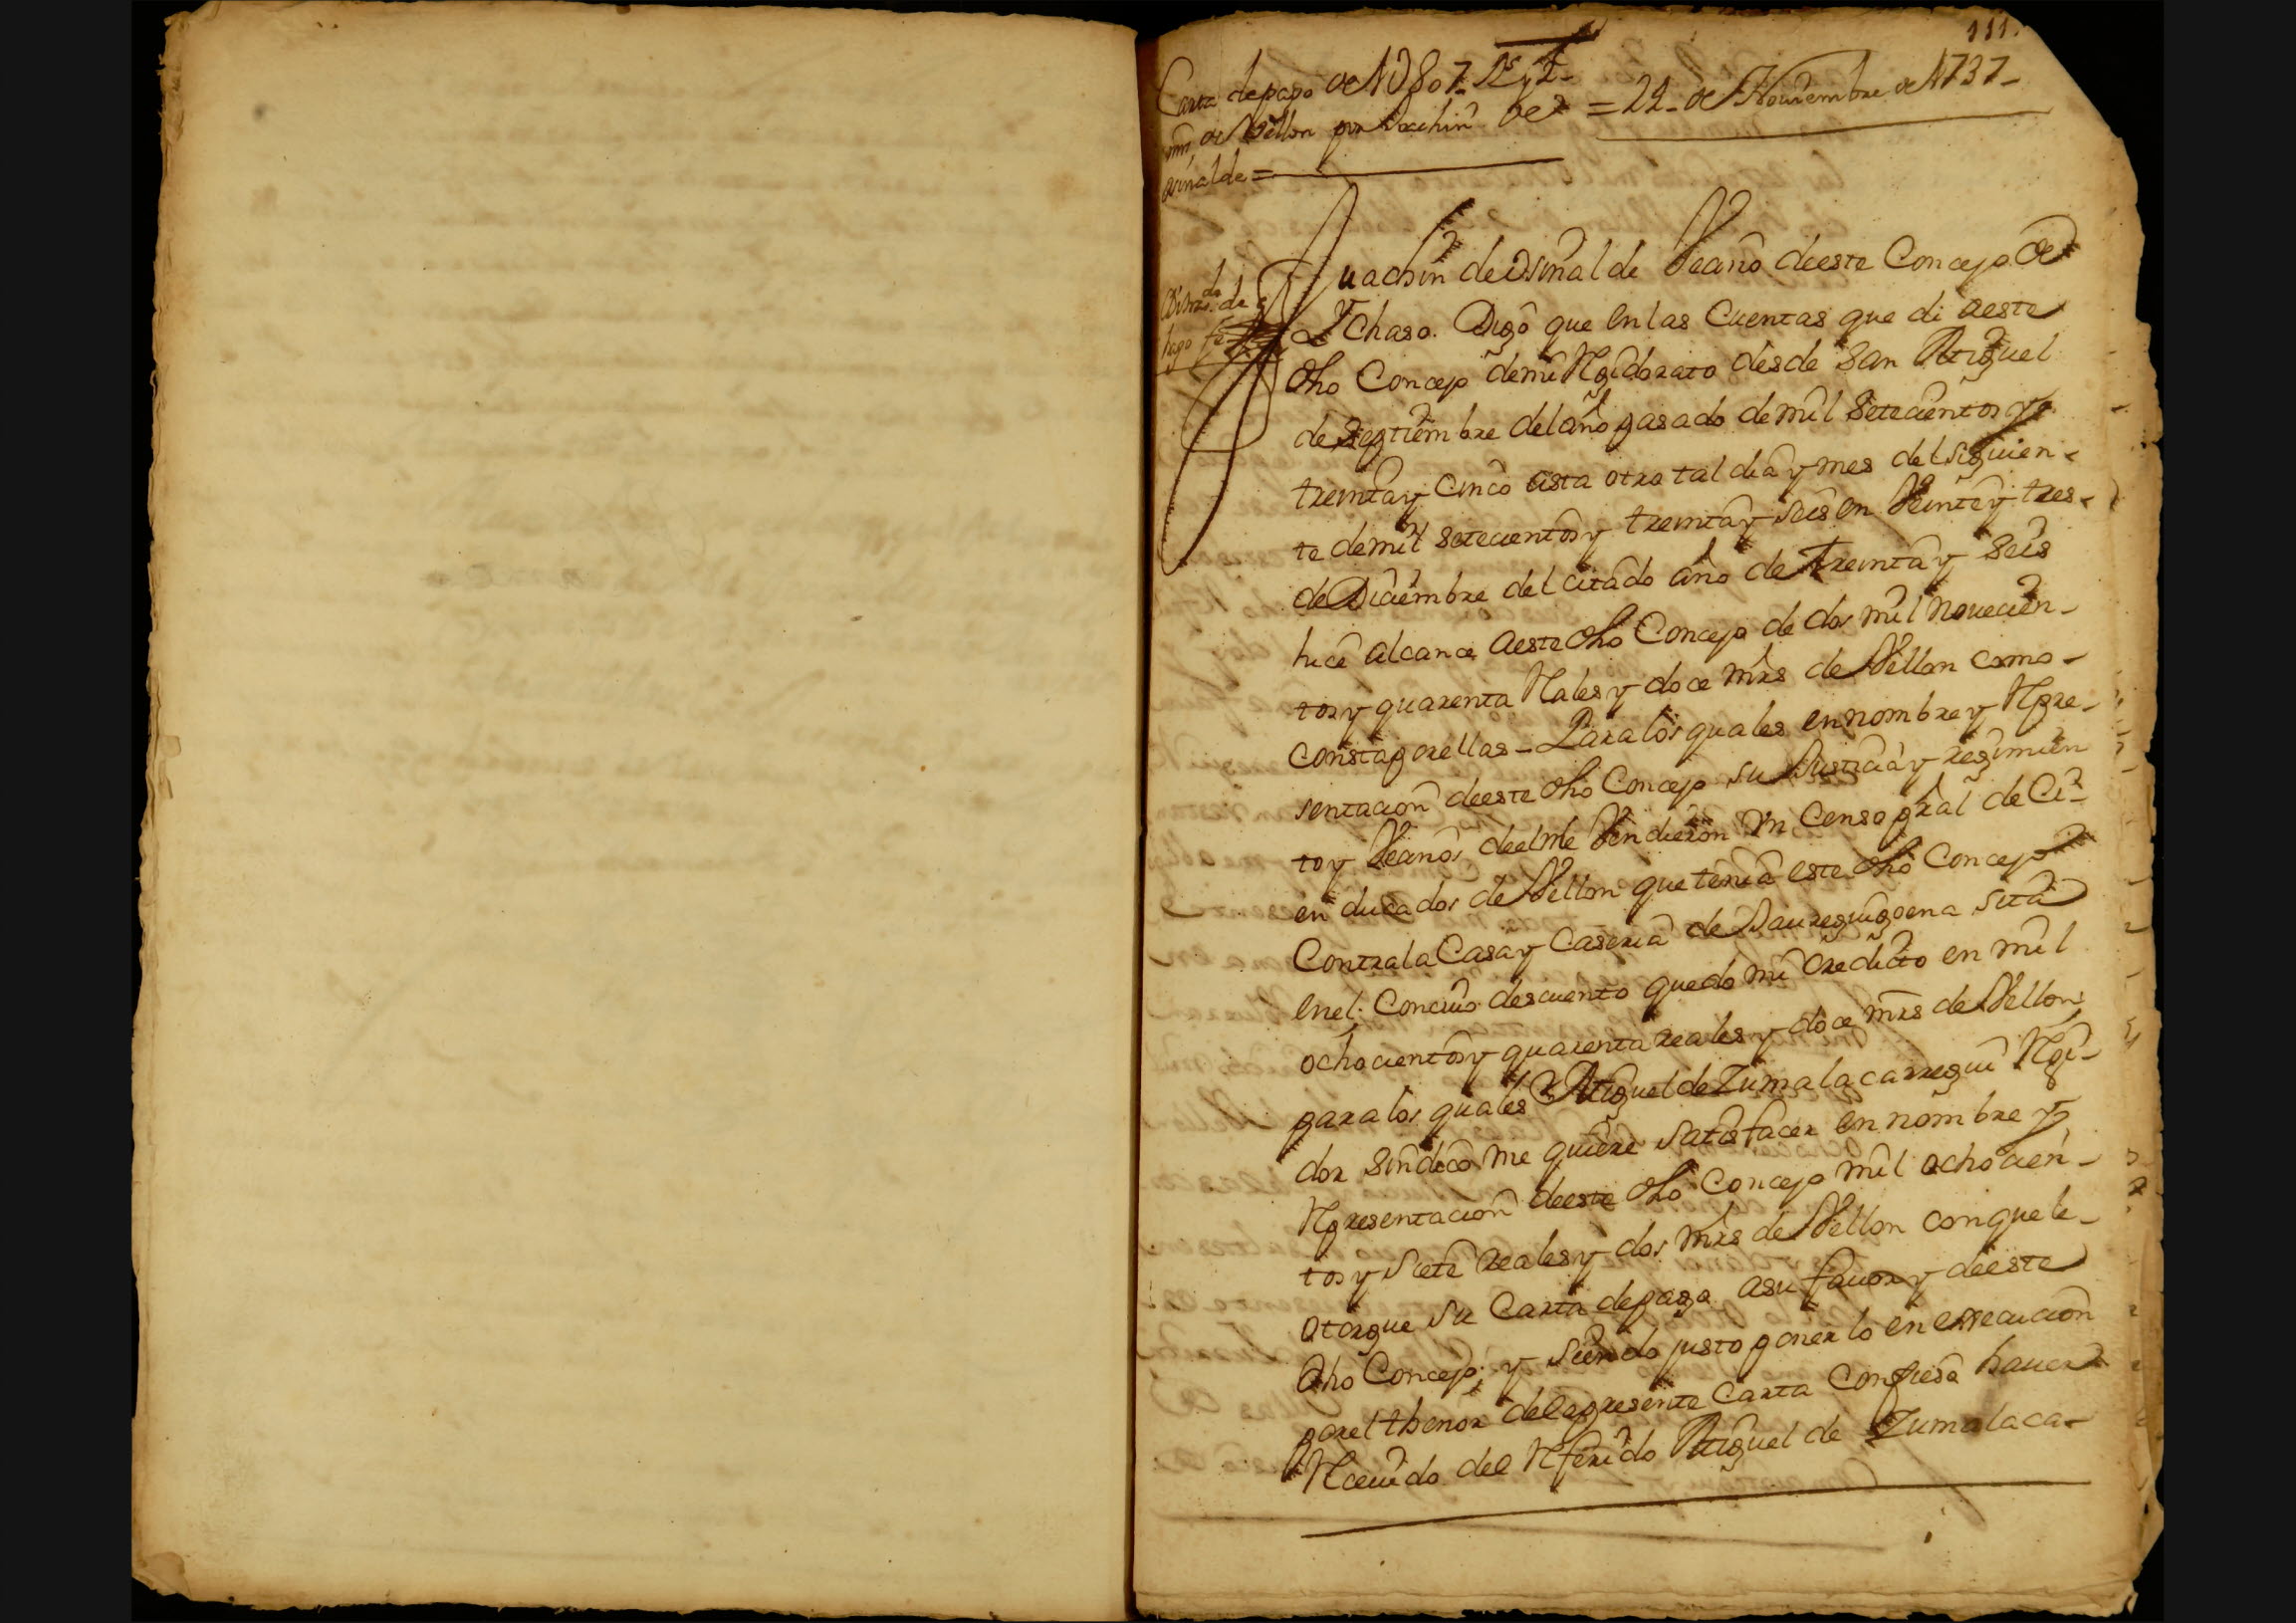 111.
Carta de pago de 1U807 Rs y 2
mrs de Vellon por Juachin de
Osinalde =
= 22 de Noviembre de 1737
Juachin de Osinalde Vecino deeste Concejo de
Ychaso. Digo que en las Cuentas que di aeste
dho Concejo demi Rejidorato desde San Miguel
de Septiembre del año pasado de mil Setecientos y
treinta y cinco asta otro tal dia y mes del Siguien-
te de mil setecientos y treinta y seis en Veinte y tres
de Diciembre del citado año de treinta y Seis
hice alcance aeste dho Concejo de dos mil novecien-
tos y quarenta Rales y doce mrs de Vellon como
consta por ellas - Para los quales en nombre y Repre-
sentacion deeste dho Concejo su Justicia y regimien
to y Vecinos deel me Vendieron Un Censo pral de Ci-
en ducados de Vellon que tenia este dho Concejo
Contra la Casa y Caseria de Jaureguigoena sita
en el. Concuio descuento quedo mi credicto en mil
ochocientos y quarenta reales y doce mrs de Vellon,
para los quales Miguel de Zumalacarregui Reji-
dor Sindico me quiere satisfacer en nombre y
Representacion deeste dho Concejo mil ochocien-
tos y Siete reales y dos mrs de Vellon conque le
otorgue su Carta de pago asu favor y deeste
dho Concejo; y siendo justo ponerlo en essecucion
por el thenor dela presente Carta Confieso haver
Recivido del Referido Miguel de Zumalaca-